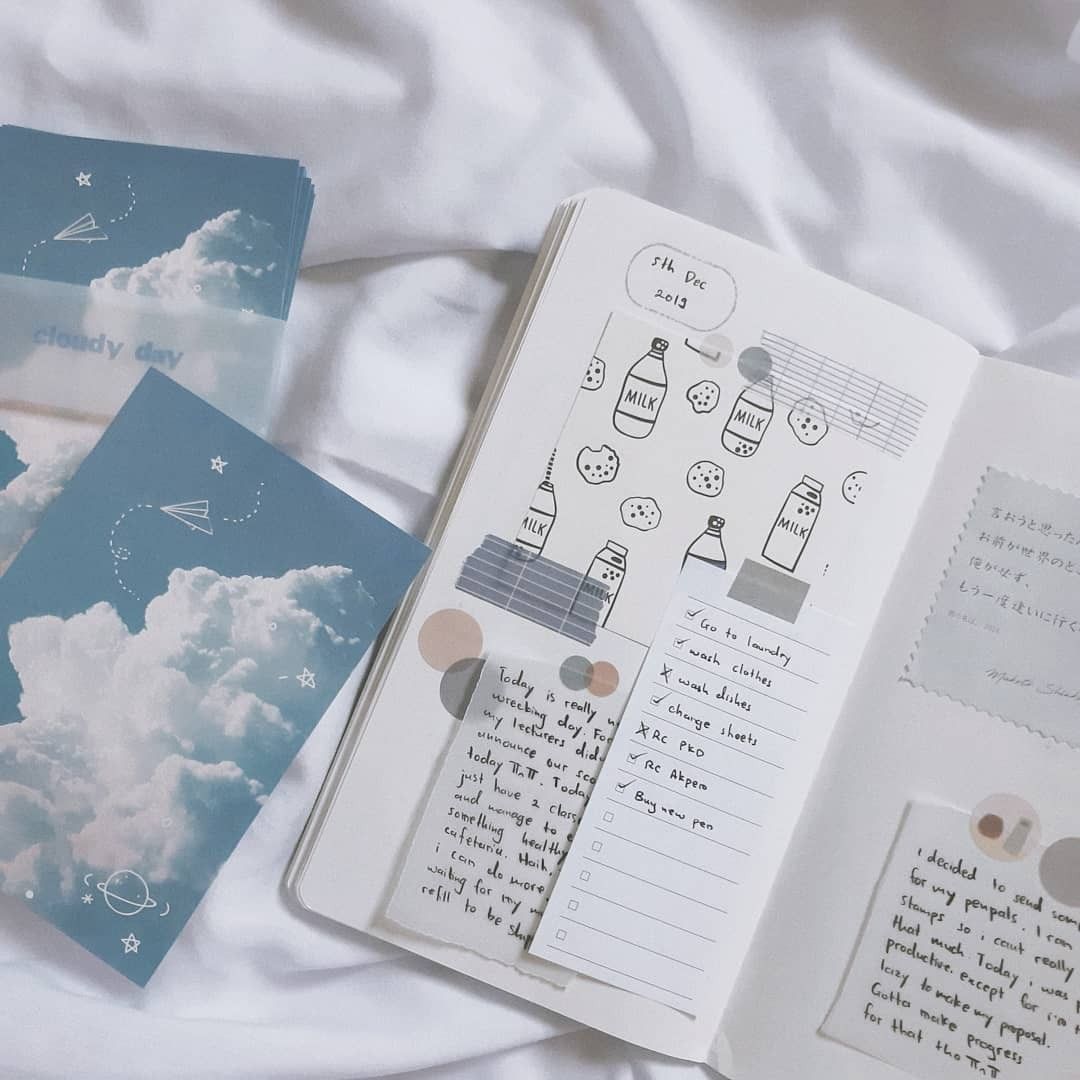 cloudy day
5th Dec
2019
MILK
MILK
MILK
MILK
MILK
Today is really
wrecking day. For
my lecturers did
announce our
today TTnTT. Today
just have 2 class
and manage to
something healthy
cafetaria. Haih,
i can do more
waiting for my
refill to be
Go to laundry
wash clothes
wash dishes
charge sheets
RC PKD
RC Akpero
Buy new pen
言おうと思ったん
お前が世界のどこ
俺が必ず、
もう一度逢いに行く
君の名は。2016
Makoto Shink
I decided to send som
for my penpals. I can
stamps so i cant really
that much. Today i was
productive. except for i'm
lazy to make my proposal.
Gotta make progress
for that tho TTnTT